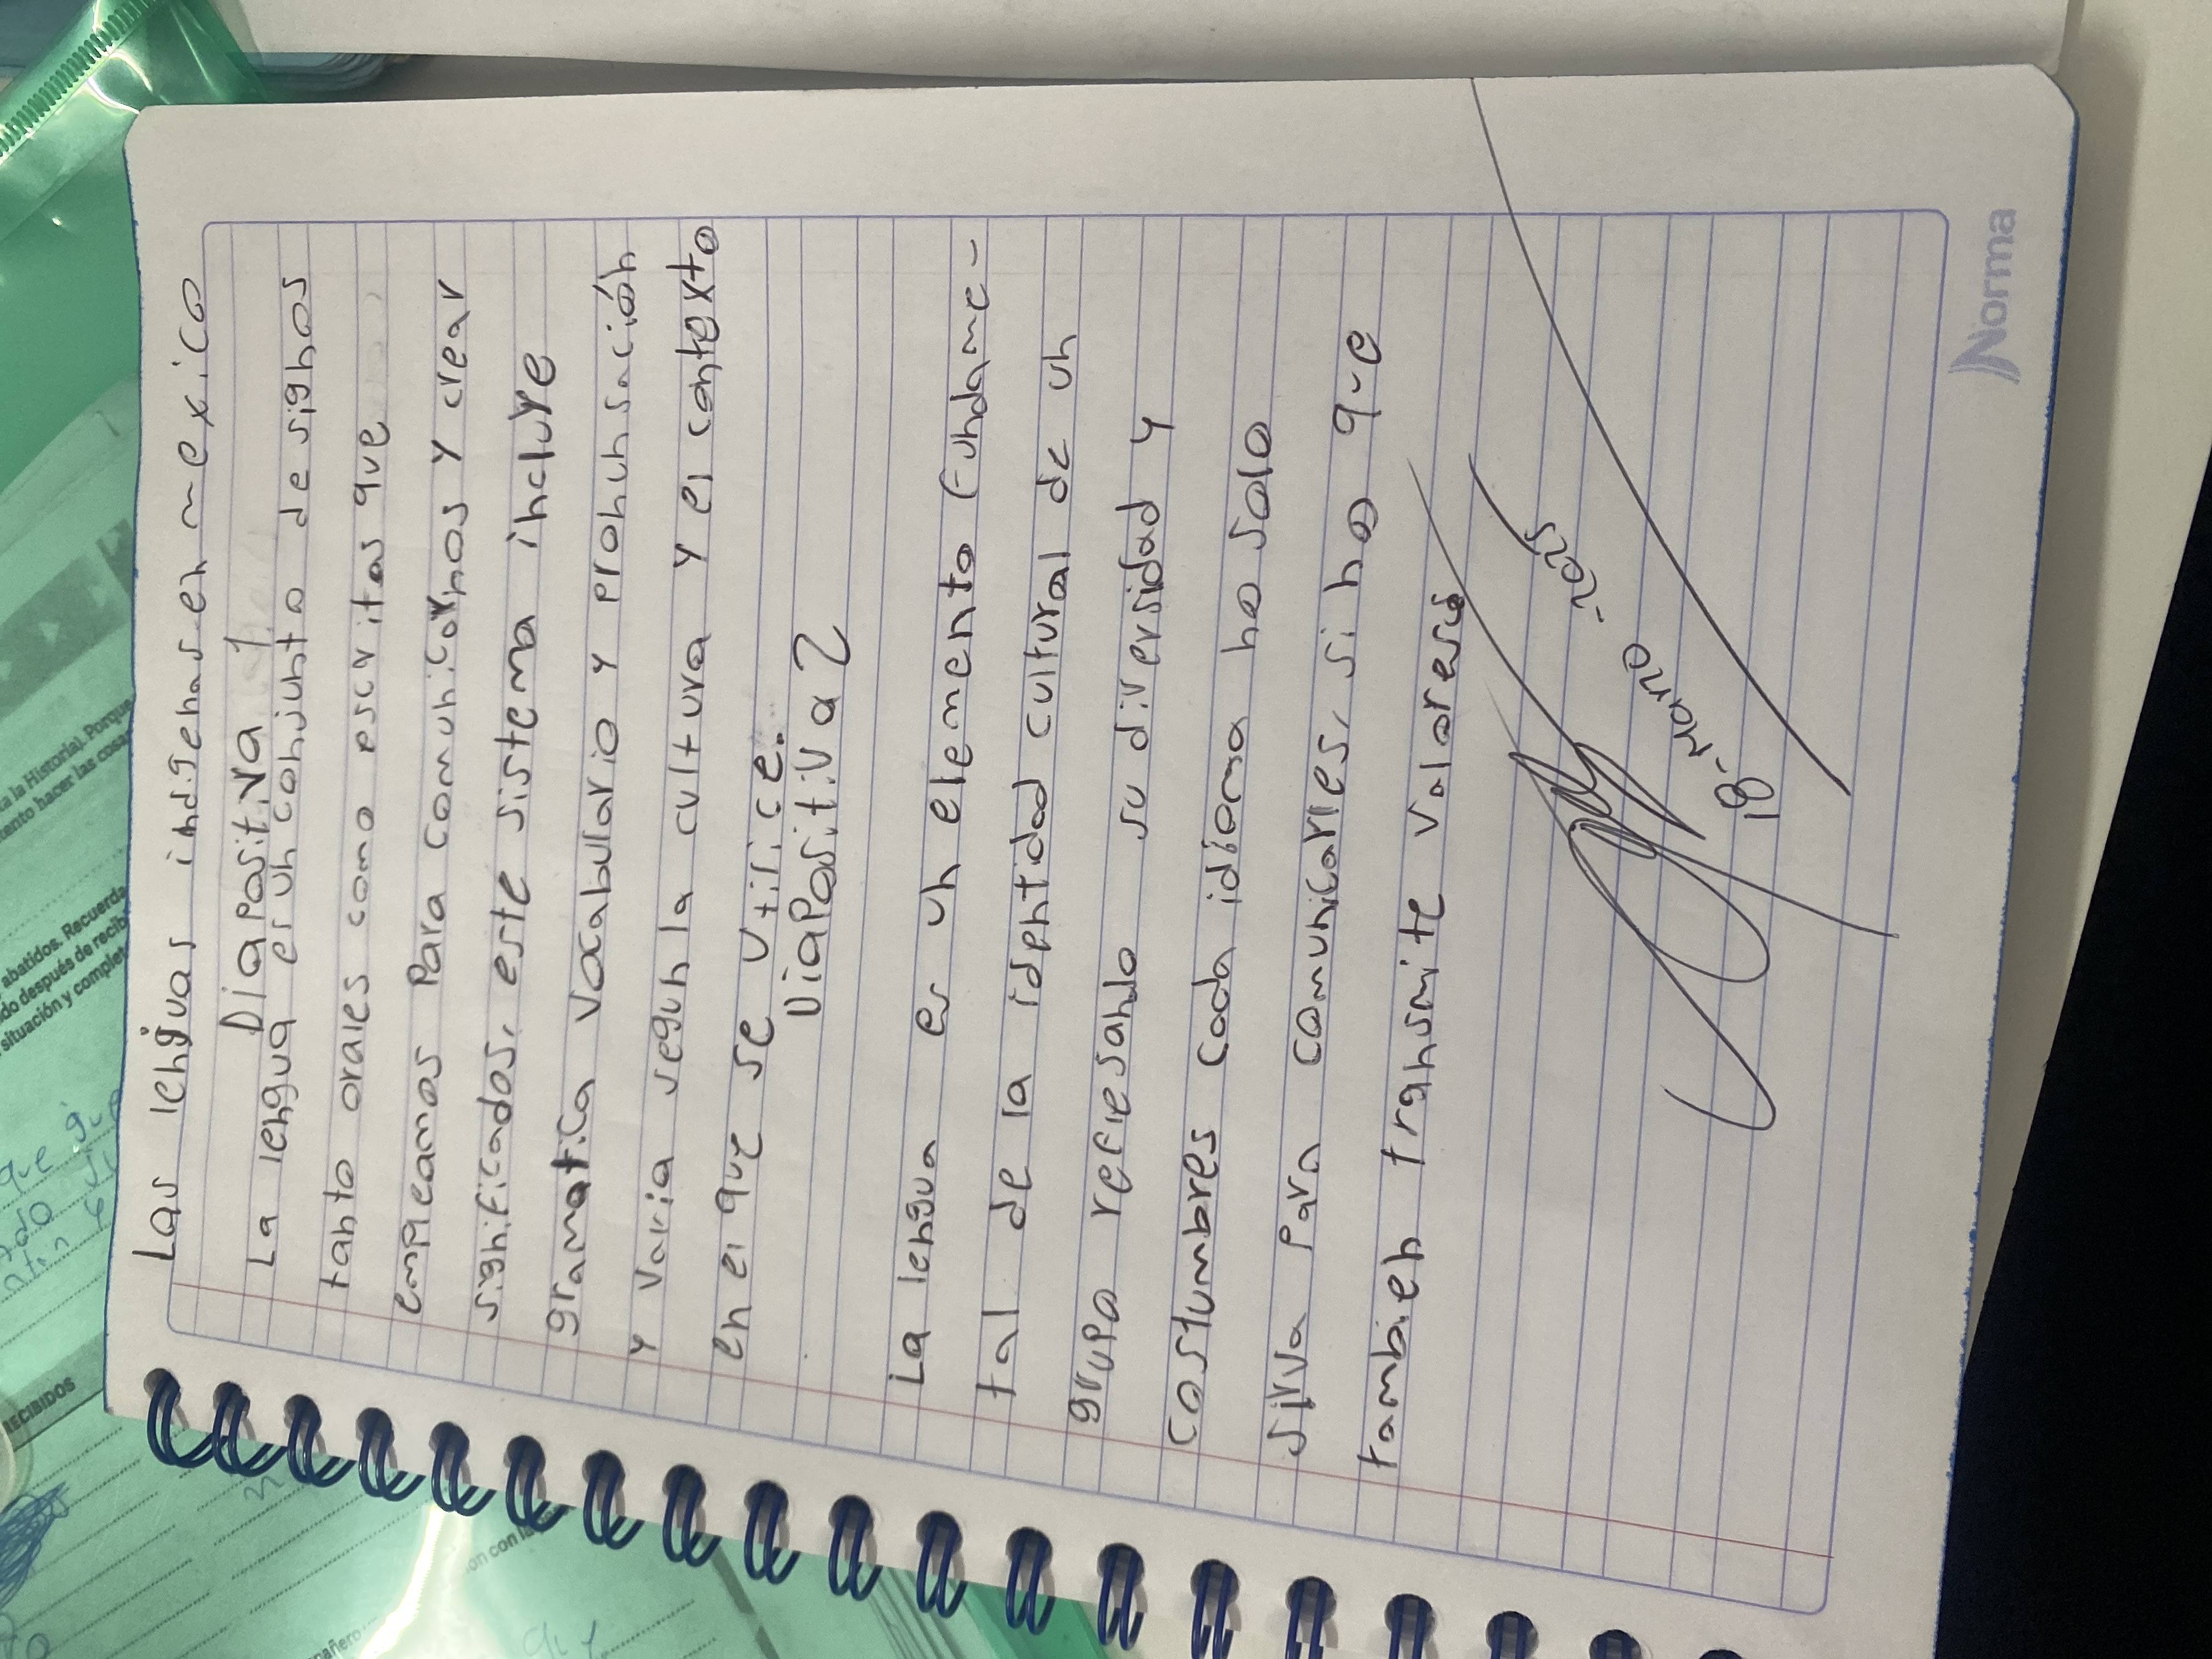 Las lenguas indigenas en mexico
Diapositiva 1
La lengua es un conjunto de signos
tanto orales como escritas que
empleamos Para comunicarnos y crear
significados, este sistema incluye
gramatica vocabulario y pronunsación
y varia segun la cultura y el contexto
en el que se utilice.
DiaPositiva 2
La lengua es un elemento fundame-
tal de la identidad cultural de un
grupo reflesando su diversidad y
costumbres cada idioma no solo
sirva para comunicarles, sino que
tambien transmite valores
18-Marzo-2025
Norma
a la Historia). Porque
abatidos. Recuerda
do después de recib
situación y complet
RECIBIDOS
on con la
que